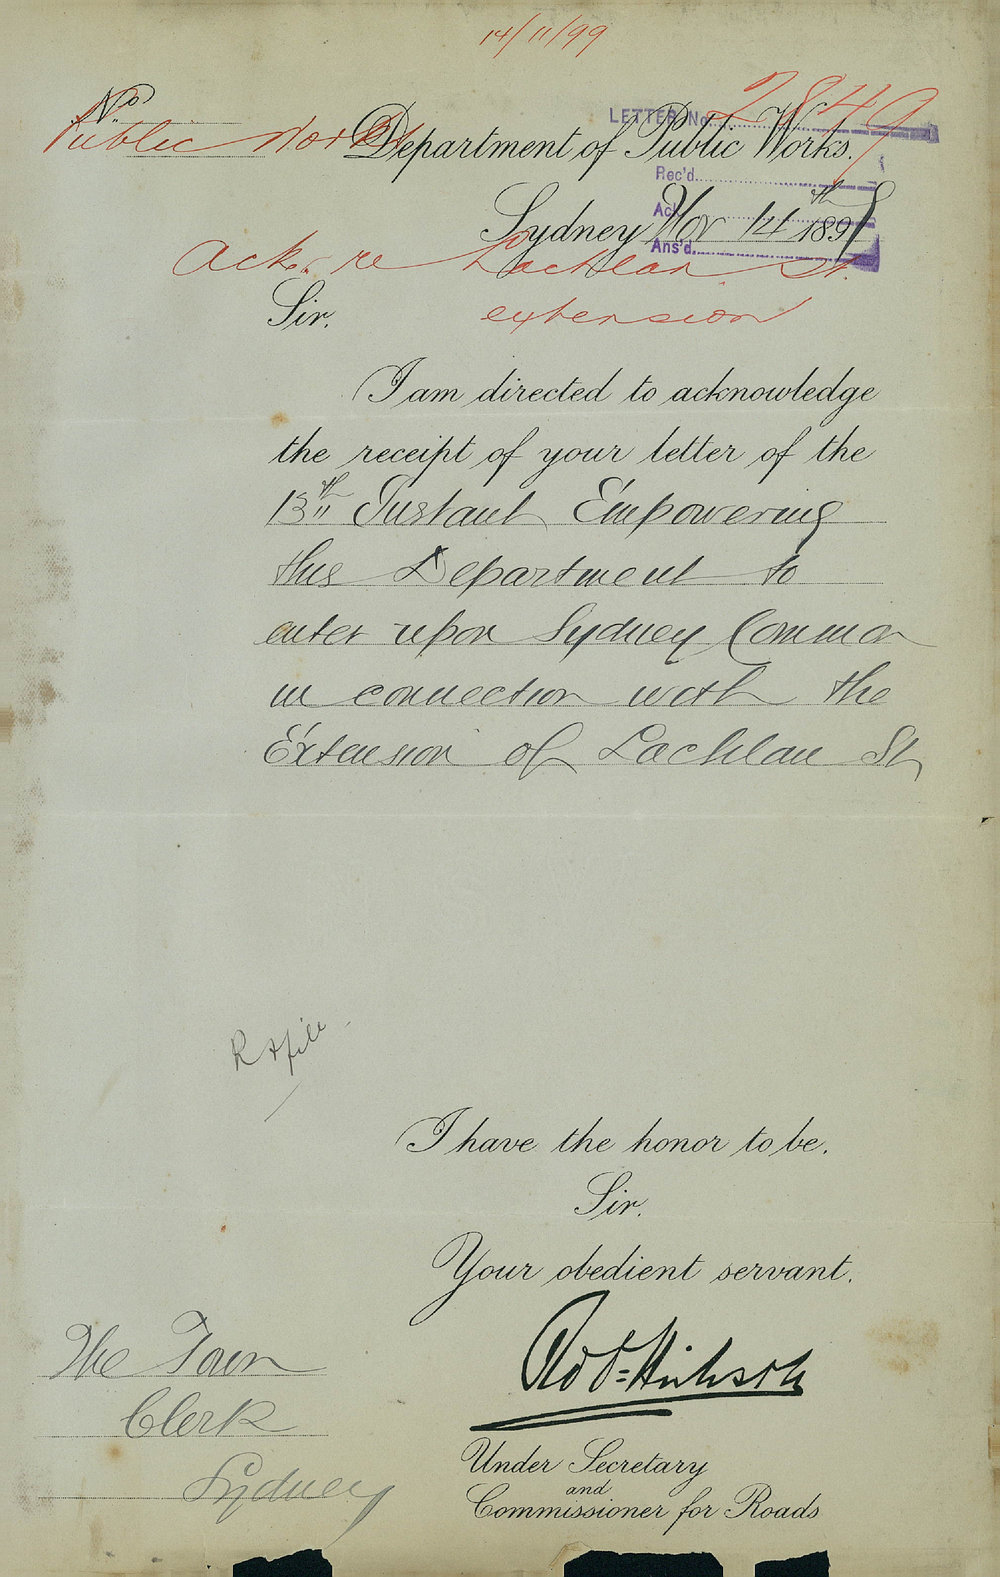 14/11/99
No
LETTER No. 2849
Public Works
Department of Public Works.
Rec'd
Ack
Sydney Nov 14th 1899
Ans'd
Ack. re Lachlan St.
extension
Sir.
I am directed to acknowledge
the receipt of your letter of the
13th Instant Empowering
this Department to
enter upon Sydney Common
in connection with the
Extension of Lachlan St
R & file
I have the honor to be.
Sir.
Your obedient servant.
Robt Hickson
Under Secretary
and
Commissioner for Roads
The Town
Clerk
Sydney